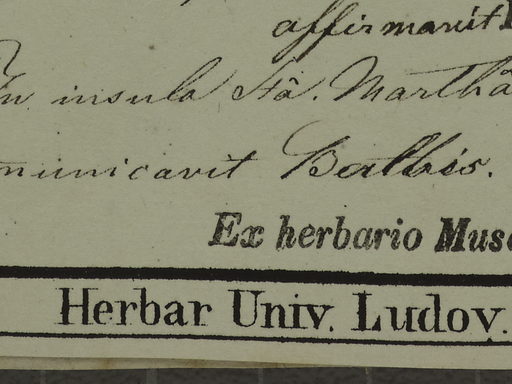 affirmavit
In insula Stâ. Martha
municavit Balbis.
Ex herbario Mus
Herbar Univ. Ludov.